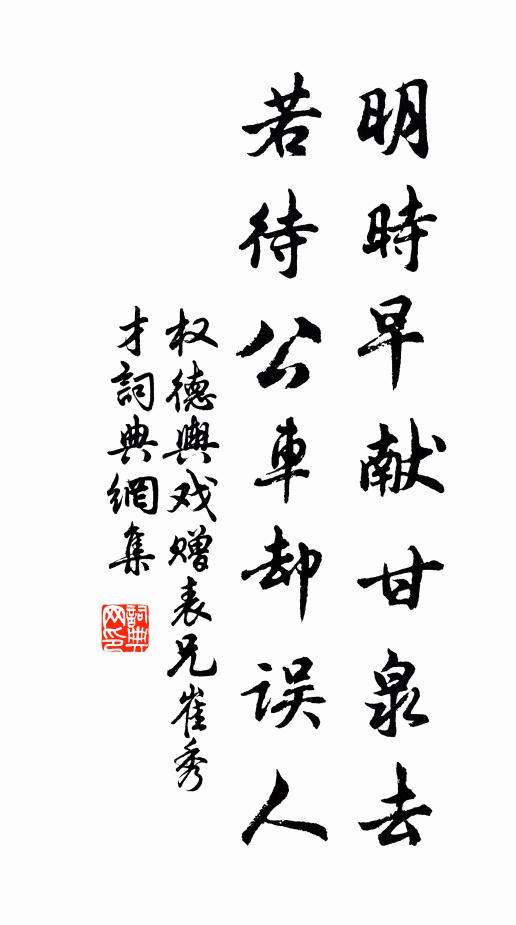 明時早献甘泉去
若待公車却误人
权德輿戏赠表兄崔秀
才詞典網集
詞典
网印